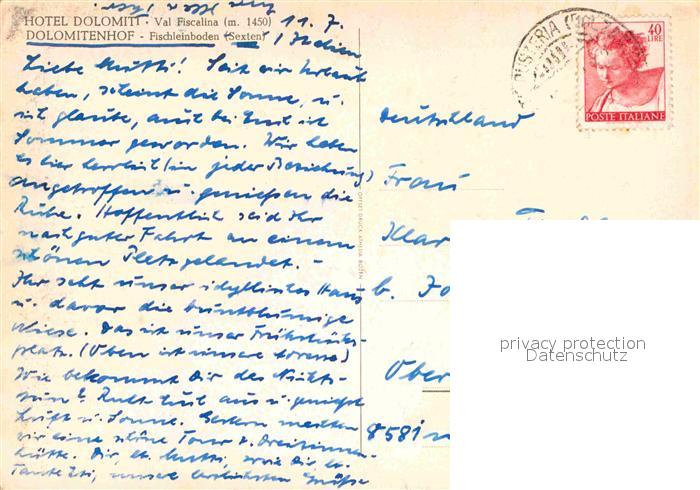 HOTEL DOLOMITI - Val Fiscalina (m. 1450)
DOLOMITENHOF - Fischleinboden (Sexten)
11. 7.
Italien
Liebe Mutti! Seit wir Urlaub
haben, scheint die Sonne, u.
ich glaube, auch bei Euch ist
Sommer geworden. Wir haben
es hier herrlich (in jeder Beziehung)
angetroffen u. genießen die
Ruhe. Hoffentlich seid Ihr
nach guter Fahrt an einem
schönen Platz gelandet. -
Ihr seht unser idyllisches Haus
u. davor die buntblumige
Wiese. Das ist unser Frühstücks-
platz. (Oben ist unsere Terrasse)
Wie bekommt Dir das Nichts-
tun? Ruht Euch aus u. genießt
Luft u. Sonne. Gestern machten
wir eine schöne Tour z. Dreizinnen-
hütte. Dir, lb. Mutti, sowie Dir, lb.
Tante, unsere herzlichsten Grüße
OFFSET DRUCK ATHESIA BOZEN
40
LIRE
POSTE ITALIANE
Deutschland
Frau
Klar
b. Jo
Ober
8581
privacy protection
Datenschutz